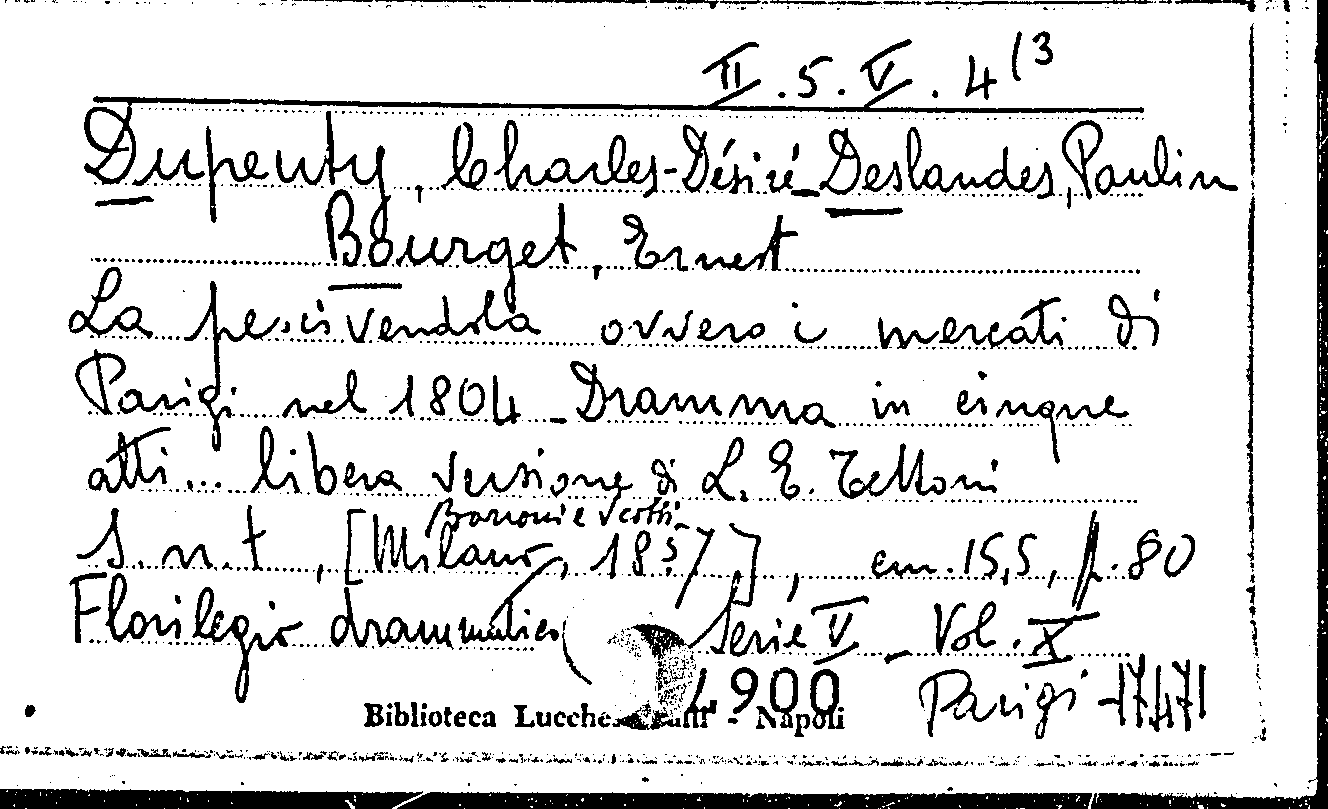 II.5.V.4/3
Dupeuty, Charles-Désiré_Deslandes, Paulin
Bourget, Ernest
La pescivendola ovvero i mercati di
Parigi nel 1804_Dramma in cinque
atti... libera versione di L. E. Tettoni
Borroni e Scotti
S.n.t, [Milano, 1857], cm.15,5, p.80
Florilegio drammatico Serie V_Vol. X
4900 Parigi
Biblioteca - Napoli